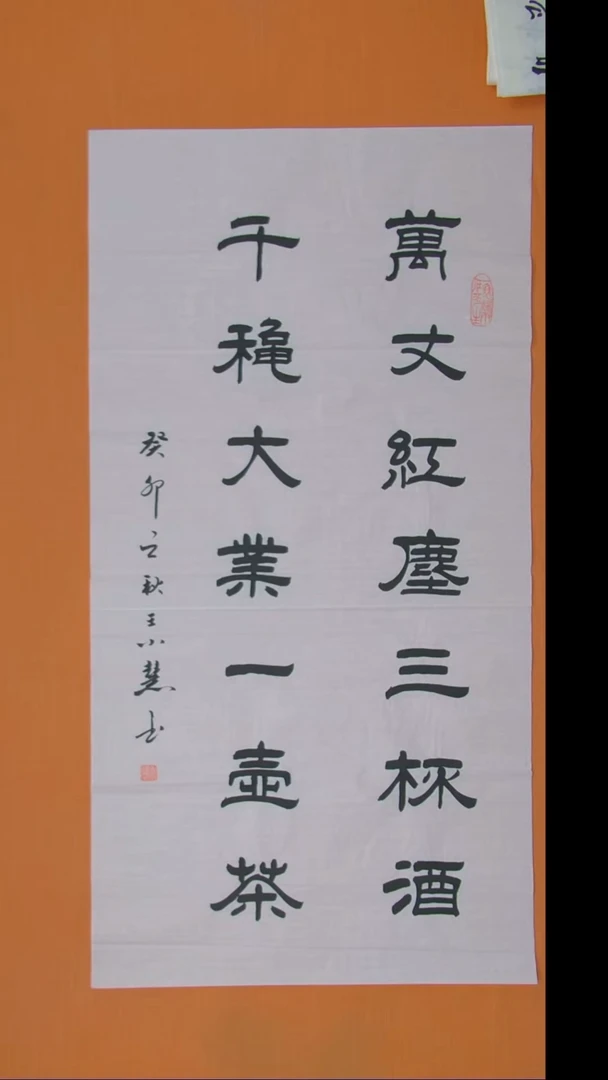 萬丈紅塵三杯酒
千穐大業一壺茶
癸卯秋王小慧书